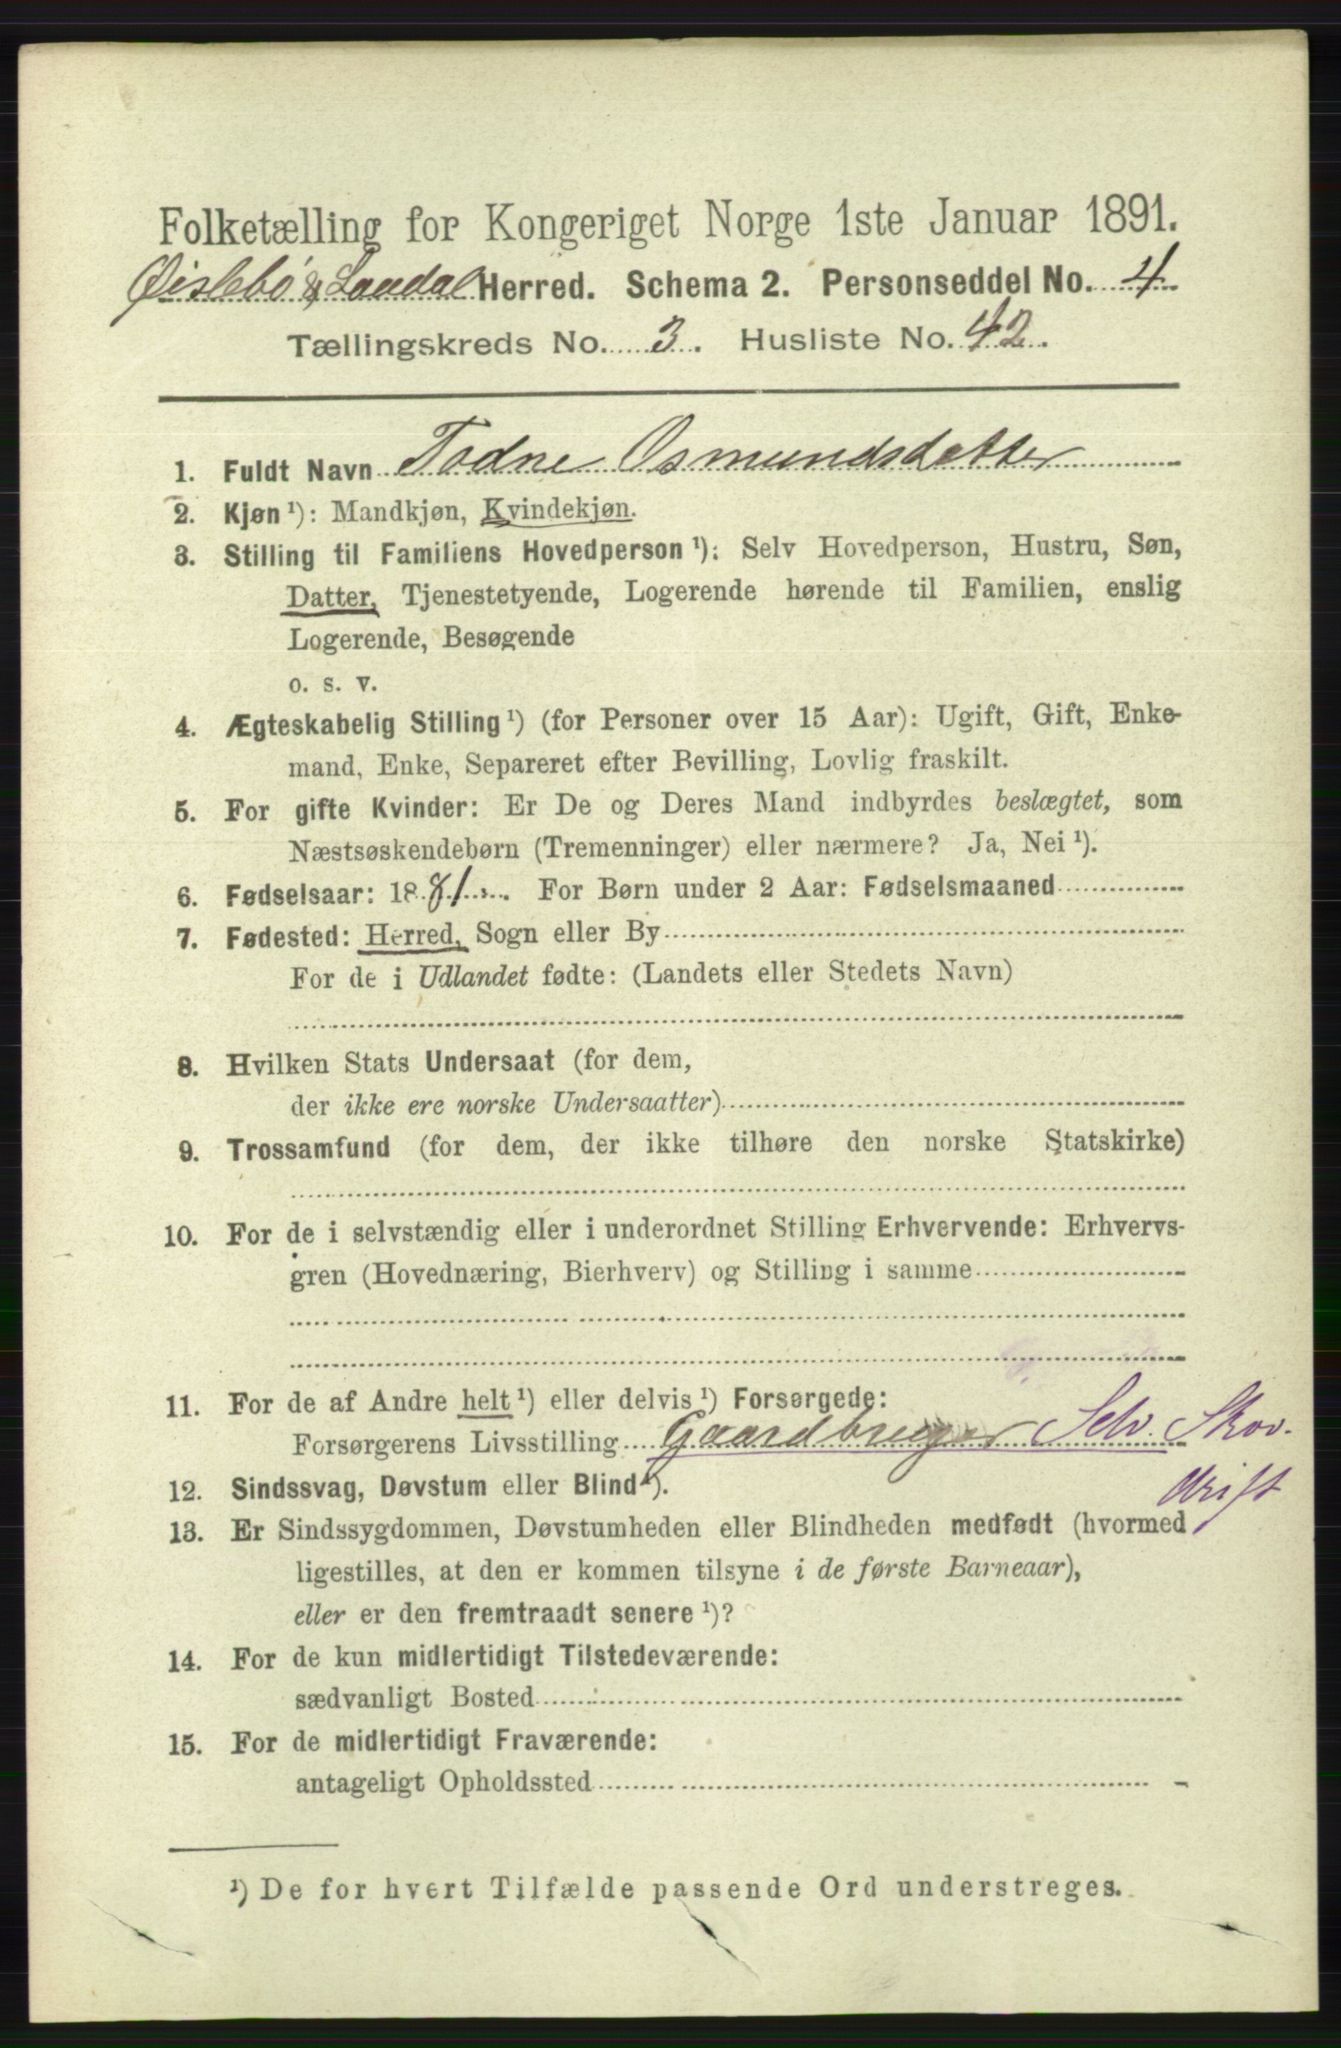 Folketælling for Kongeriget Norge 1ste Januar 1891.
Øislebö & Laudal Herred. Schema 2. Personseddel No. 4
Tællingskreds No. 3. Husliste No. 42.
1. Fuldt Navn Todne Osmundsdatter
2. Kjøn ¹): Mandkjøn, Kvindekjøn.
3. Stilling til Familiens Hovedperson ¹): Selv Hovedperson, Hustru, Søn,
Datter, Tjenestetyende, Logerende hørende til Familien, enslig
Logerende, Besøgende
o. s. v.
4. Ægteskabelig Stilling ¹) (for Personer over 15 Aar): Ugift, Gift, Enke-
mand, Enke, Separeret efter Bevilling, Lovlig fraskilt.
5. For gifte Kvinder: Er De og Deres Mand indbyrdes beslægtet, som
Næstsøskendebørn (Tremenninger) eller nærmere? Ja, Nei ¹).
6. Fødselsaar: 1881. For Børn under 2 Aar: Fødselsmaaned
7. Fødested: Herred, Sogn eller By
For de i Udlandet fødte: (Landets eller Stedets Navn)
8. Hvilken Stats Undersaat (for dem,
der ikke ere norske Undersaatter)
9. Trossamfund (for dem, der ikke tilhøre den norske Statskirke)
10. For de i selvstændig eller i underordnet Stilling Erhvervende: Erhvervs-
gren (Hovednæring, Bierhverv) og Stilling i samme
11. For de af Andre helt ¹) eller delvis ¹) Forsørgede:
Forsørgerens Livsstilling Gaardbruger Selv. Skov.
drift
12. Sindssvag, Døvstum eller Blind ¹).
13. Er Sindssygdommen, Døvstumheden eller Blindheden medfødt (hvormed
ligestilles, at den er kommen tilsyne i de første Barneaar),
eller er den fremtraadt senere ¹)?
14. For de kun midlertidigt Tilstedeværende:
sædvanligt Bosted
15. For de midlertidigt Fraværende:
antageligt Opholdssted
¹) De for hvert Tilfælde passende Ord understreges.